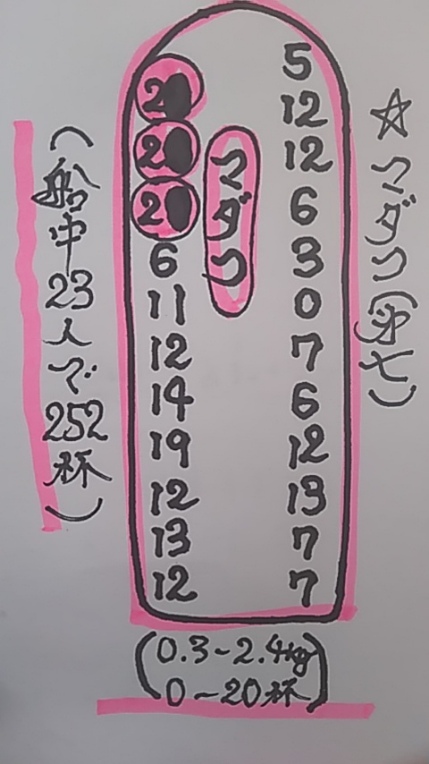 ☆マダコ(㐧七)
5
12
12
6
3
0
7
6
12
13
7
7
マダコ
20
20
20
6
11
12
14
19
12
13
12
(船中23人で252杯)
(0.3~2.4kg
0~20杯)